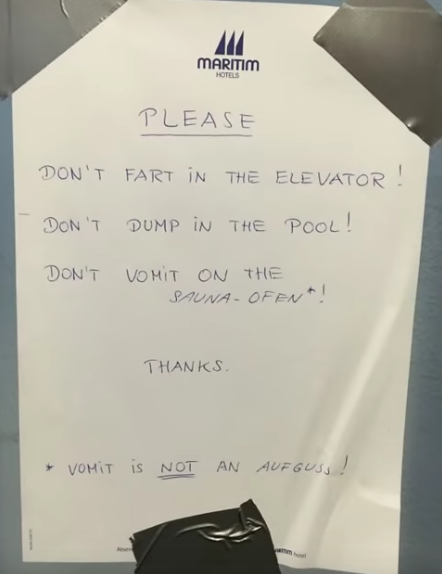 MARITIM
HOTELS
PLEASE
DON'T FART IN THE ELEVATOR!
DON'T DUMP IN THE POOL!
DON'T VOMIT ON THE
SAUNA-OFEN*!
THANKS.
* VOMIT IS NOT AN AUFGUSS!
hotel